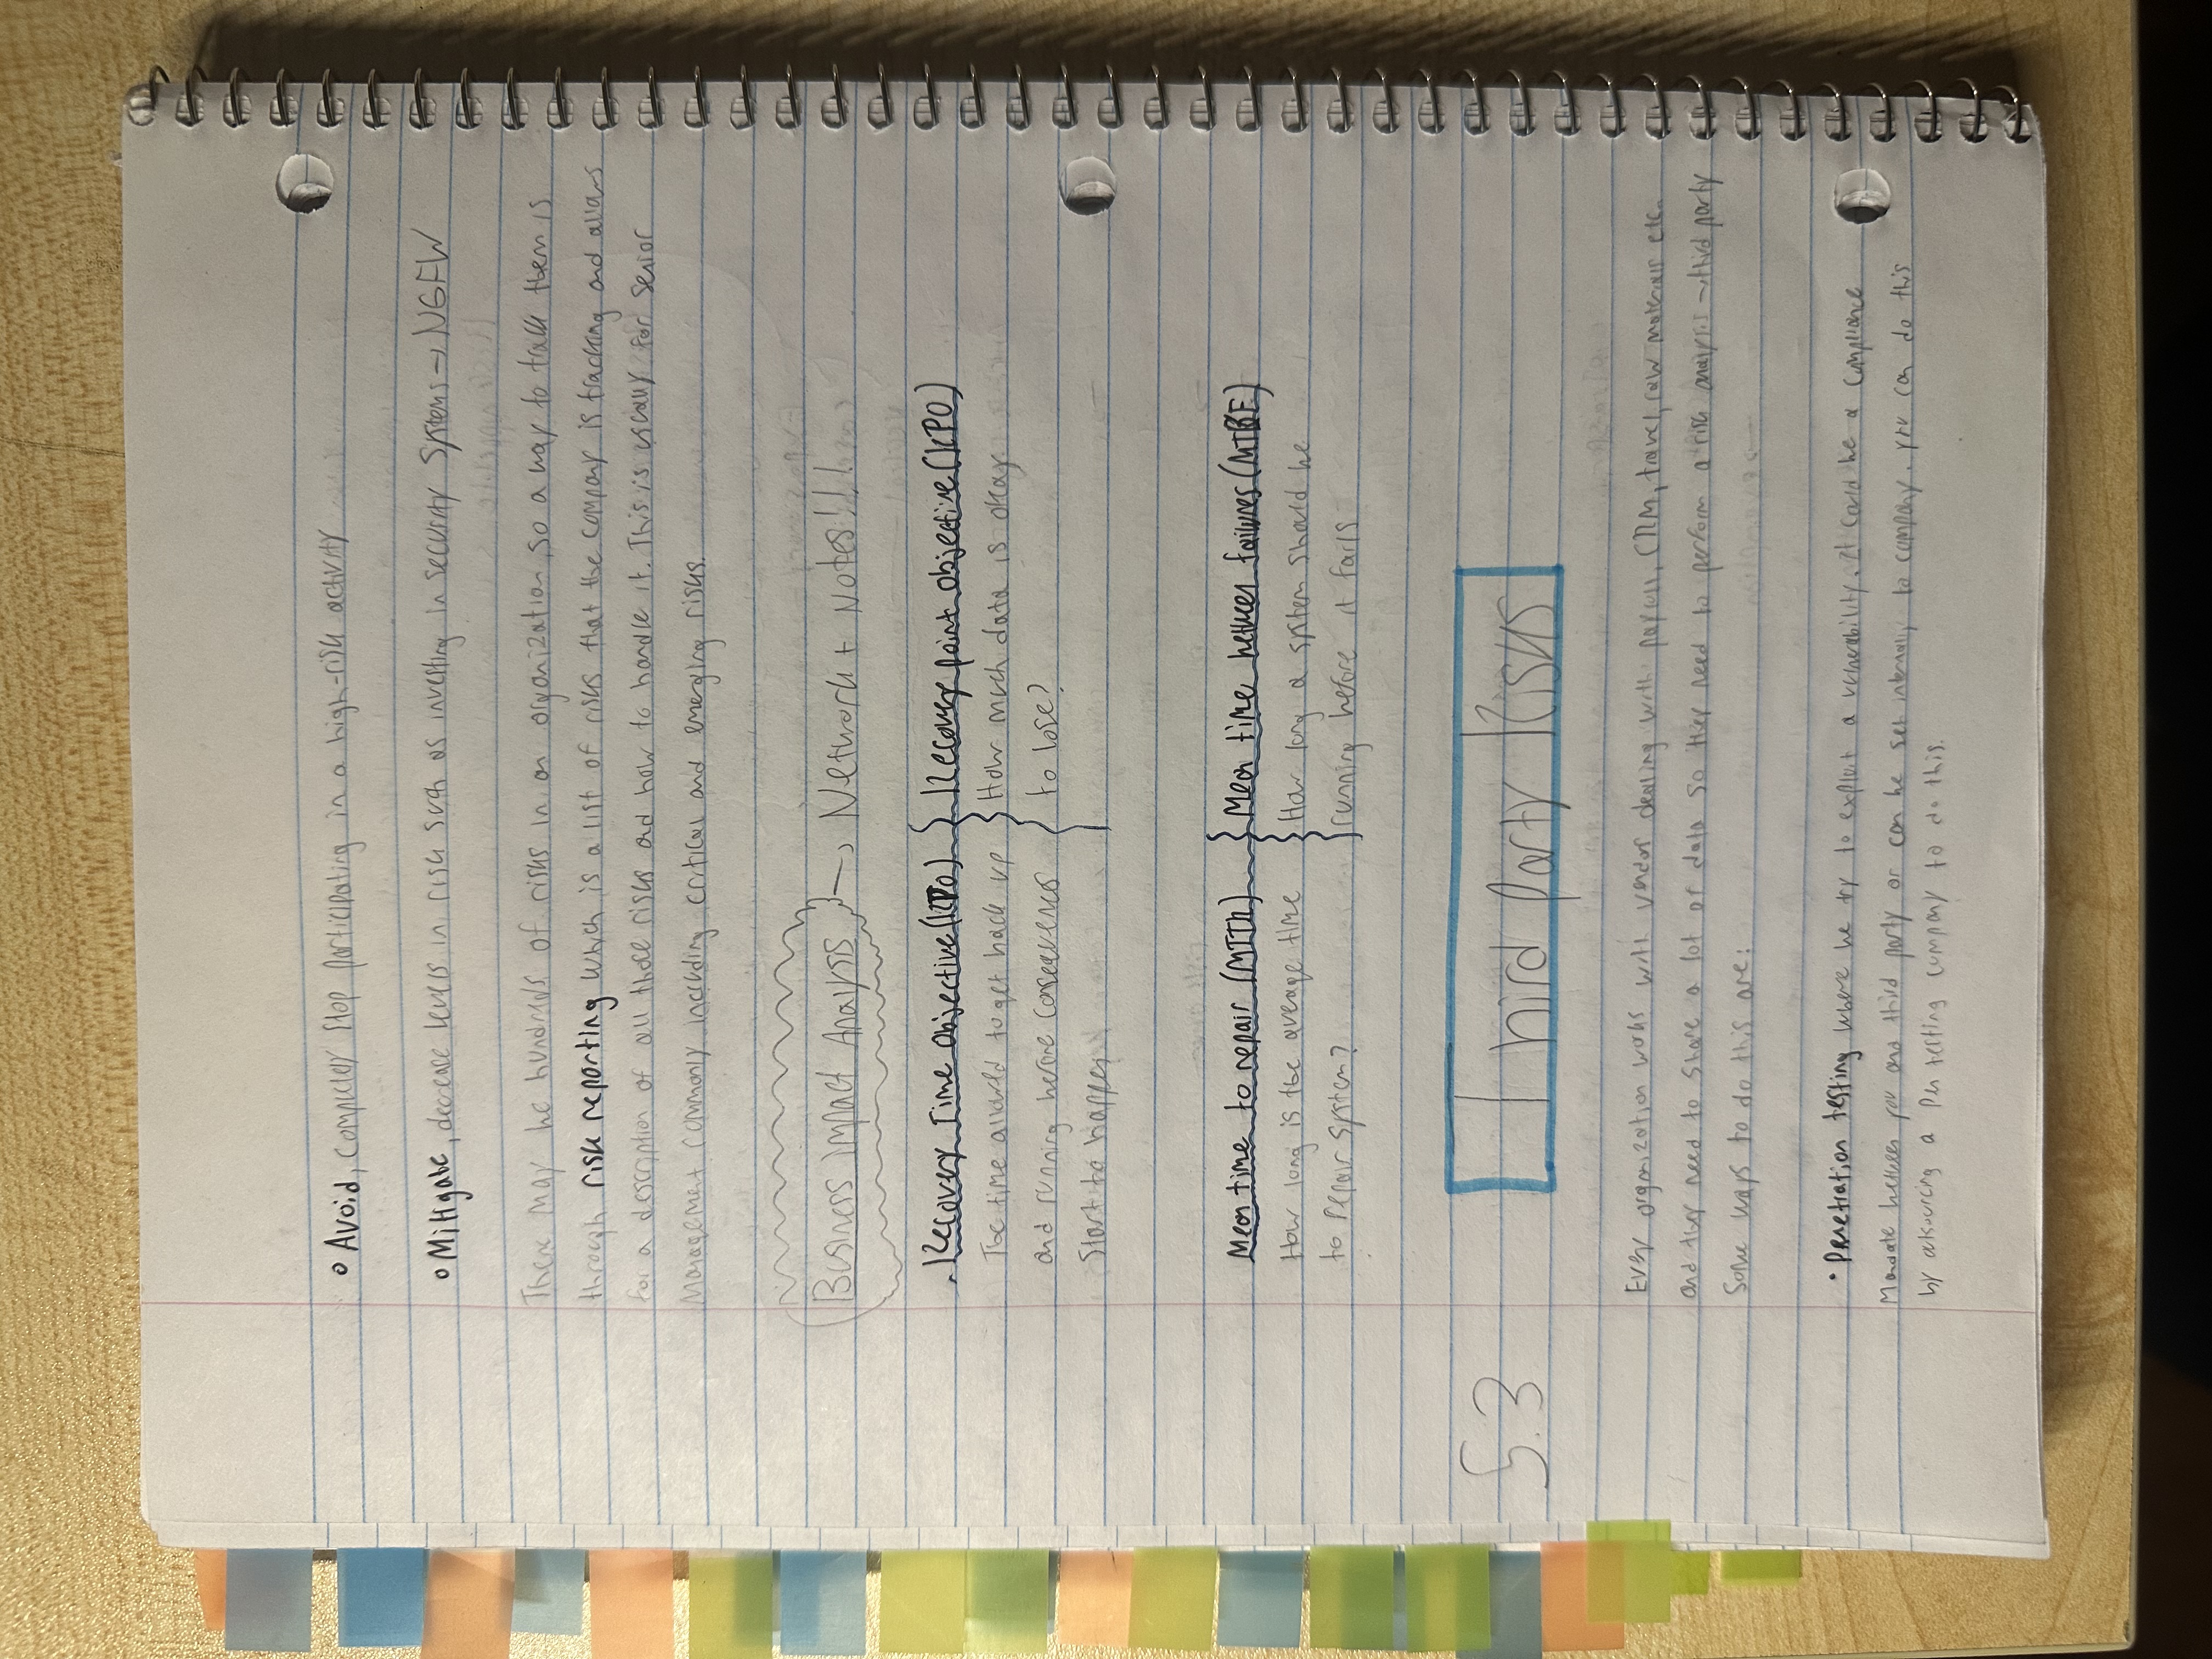 Avoid, completely stop participating in a high-risk activity
Mitigate, decrease levels in risk such as investing in security systems → NGFW
There may be hundreds of risks in an organization, so a way to track them is
through risk reporting which is a list of risks that the company is tracking and allows
for a description of all those risks and how to handle it. This is usually for senior
Management commonly including critical and emerging risks.
Business Impact Analysis → Network+ Notes!!!!
Recovery Time Objective (RTO)
The time allowed to get back up
and running before consequences
Start to happen
Recovery point objective (RPO)
How much data is okay
to lose?
Mean time to repair (MTTR)
How long is the average time
to repair system?
Mean time between failures (MTBF)
How long a system should be
running before it fails
5.3 Third Party Risks
Every organization works with vendor dealing with payroll, CRM, travel, raw materials etc.
and they need to share a lot of data so they need to perform a risk analysis → third party
Some ways to do this are:
• Penetration testing where we try to exploit a vulnerability. It could be a compliance
Mandate between you and third party or can be set internally to company. you can do this
by outsourcing a Pen testing company to do this.